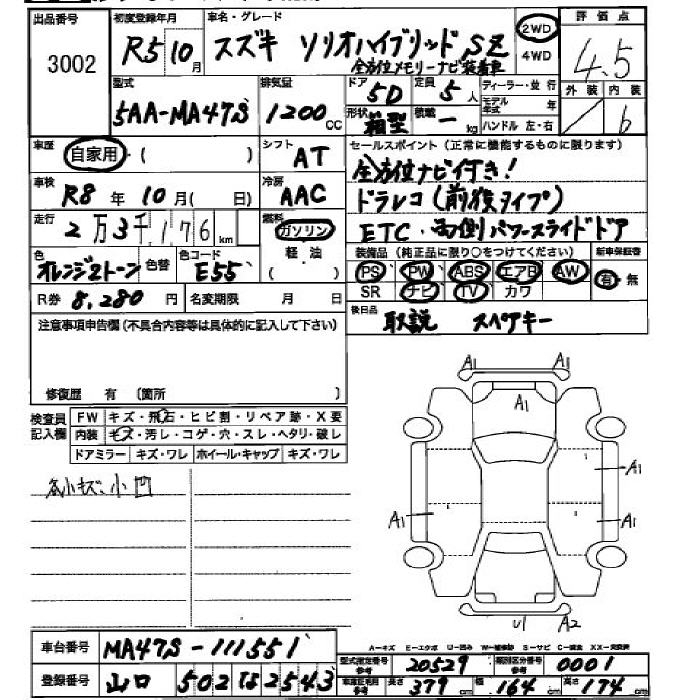 出品番号 初度登録年月 車名・グレード 評価点
3002 R5 10月 スズキ ソリオハイブリッド SZ 2WD 4WD 4.5
全方位メモリーナビ装着車
型式 排気量 ドア 5D 定員 5人 ディーラー・並行 外装 内装
5AA-MA47S 1200cc 形状 箱型 積載 ー kg モデル年式 年 ハンドル 左・右 b
車歴 自家用・( ) シフト AT セールスポイント (正常に機能するものに限ります)
全方位ナビ付き!
車検 R8年10月( 日) 冷房 AAC ドラレコ(前後タイプ)
走行 2万3千176km 燃料 ガソリン 軽・油 ( ) ETC・両側パワースライドドア
色 オレンジ2トーン 色替 色コード E55 装備品 (純正品に限り○をつけてください) 新車保証書
PS PW ABS エアB AW 有・無
SR ナビ TV カワ
R券 8,280円 名変期限 月 日 後日品 取説 スペアキー
注意事項申告欄(不具合内容等は具体的に記入して下さい)
修復歴 有 〔箇所 〕
検査員記入欄 FW キズ・飛石・ヒビ割・リペア跡・X要
内装 キズ・汚レ・コゲ・穴・スレ・ヘタリ・破レ
ドアミラー キズ・ワレ ホイール・キャップ キズ・ワレ
各小キズ、小凹
A1 A1
A1
A1
A1 A1
U1 A2
A-キズ E-エクボ U-凹み W-補修跡 S-サビ C-腐食 XX-交換済
車台番号 MA47S-111551
登録番号 山口 502 な 2543
型式指定番号 参考 20529 類別区分番号 参考 0001
車庫証明用 参考 長さ 379cm 幅 164cm 高さ 174cm